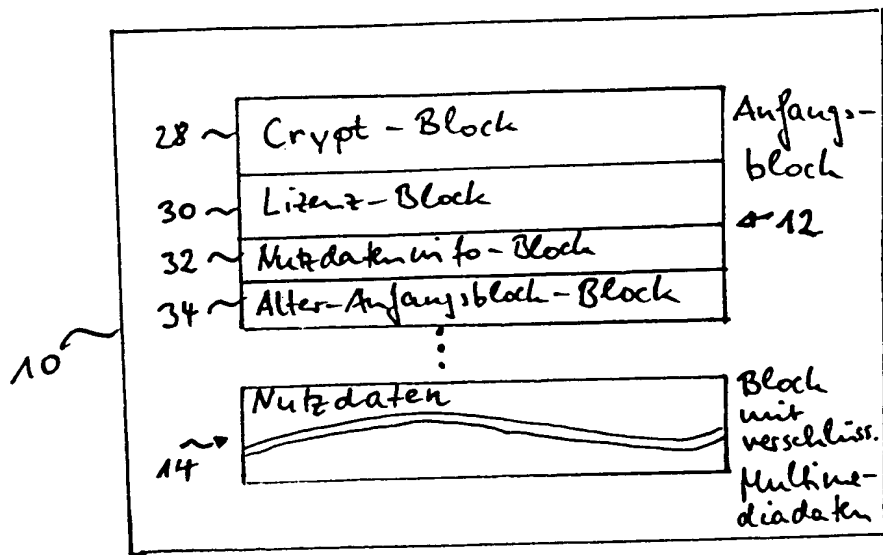 28 Crypt-Block
Anfangs-
block
30 Lizenz-Block
12
32 Nutzdateninfo-Block
34 Alter-Anfangsblock-Block
10
Nutzdaten
14
Block
mit
verschlüss.
Multime-
diadaten